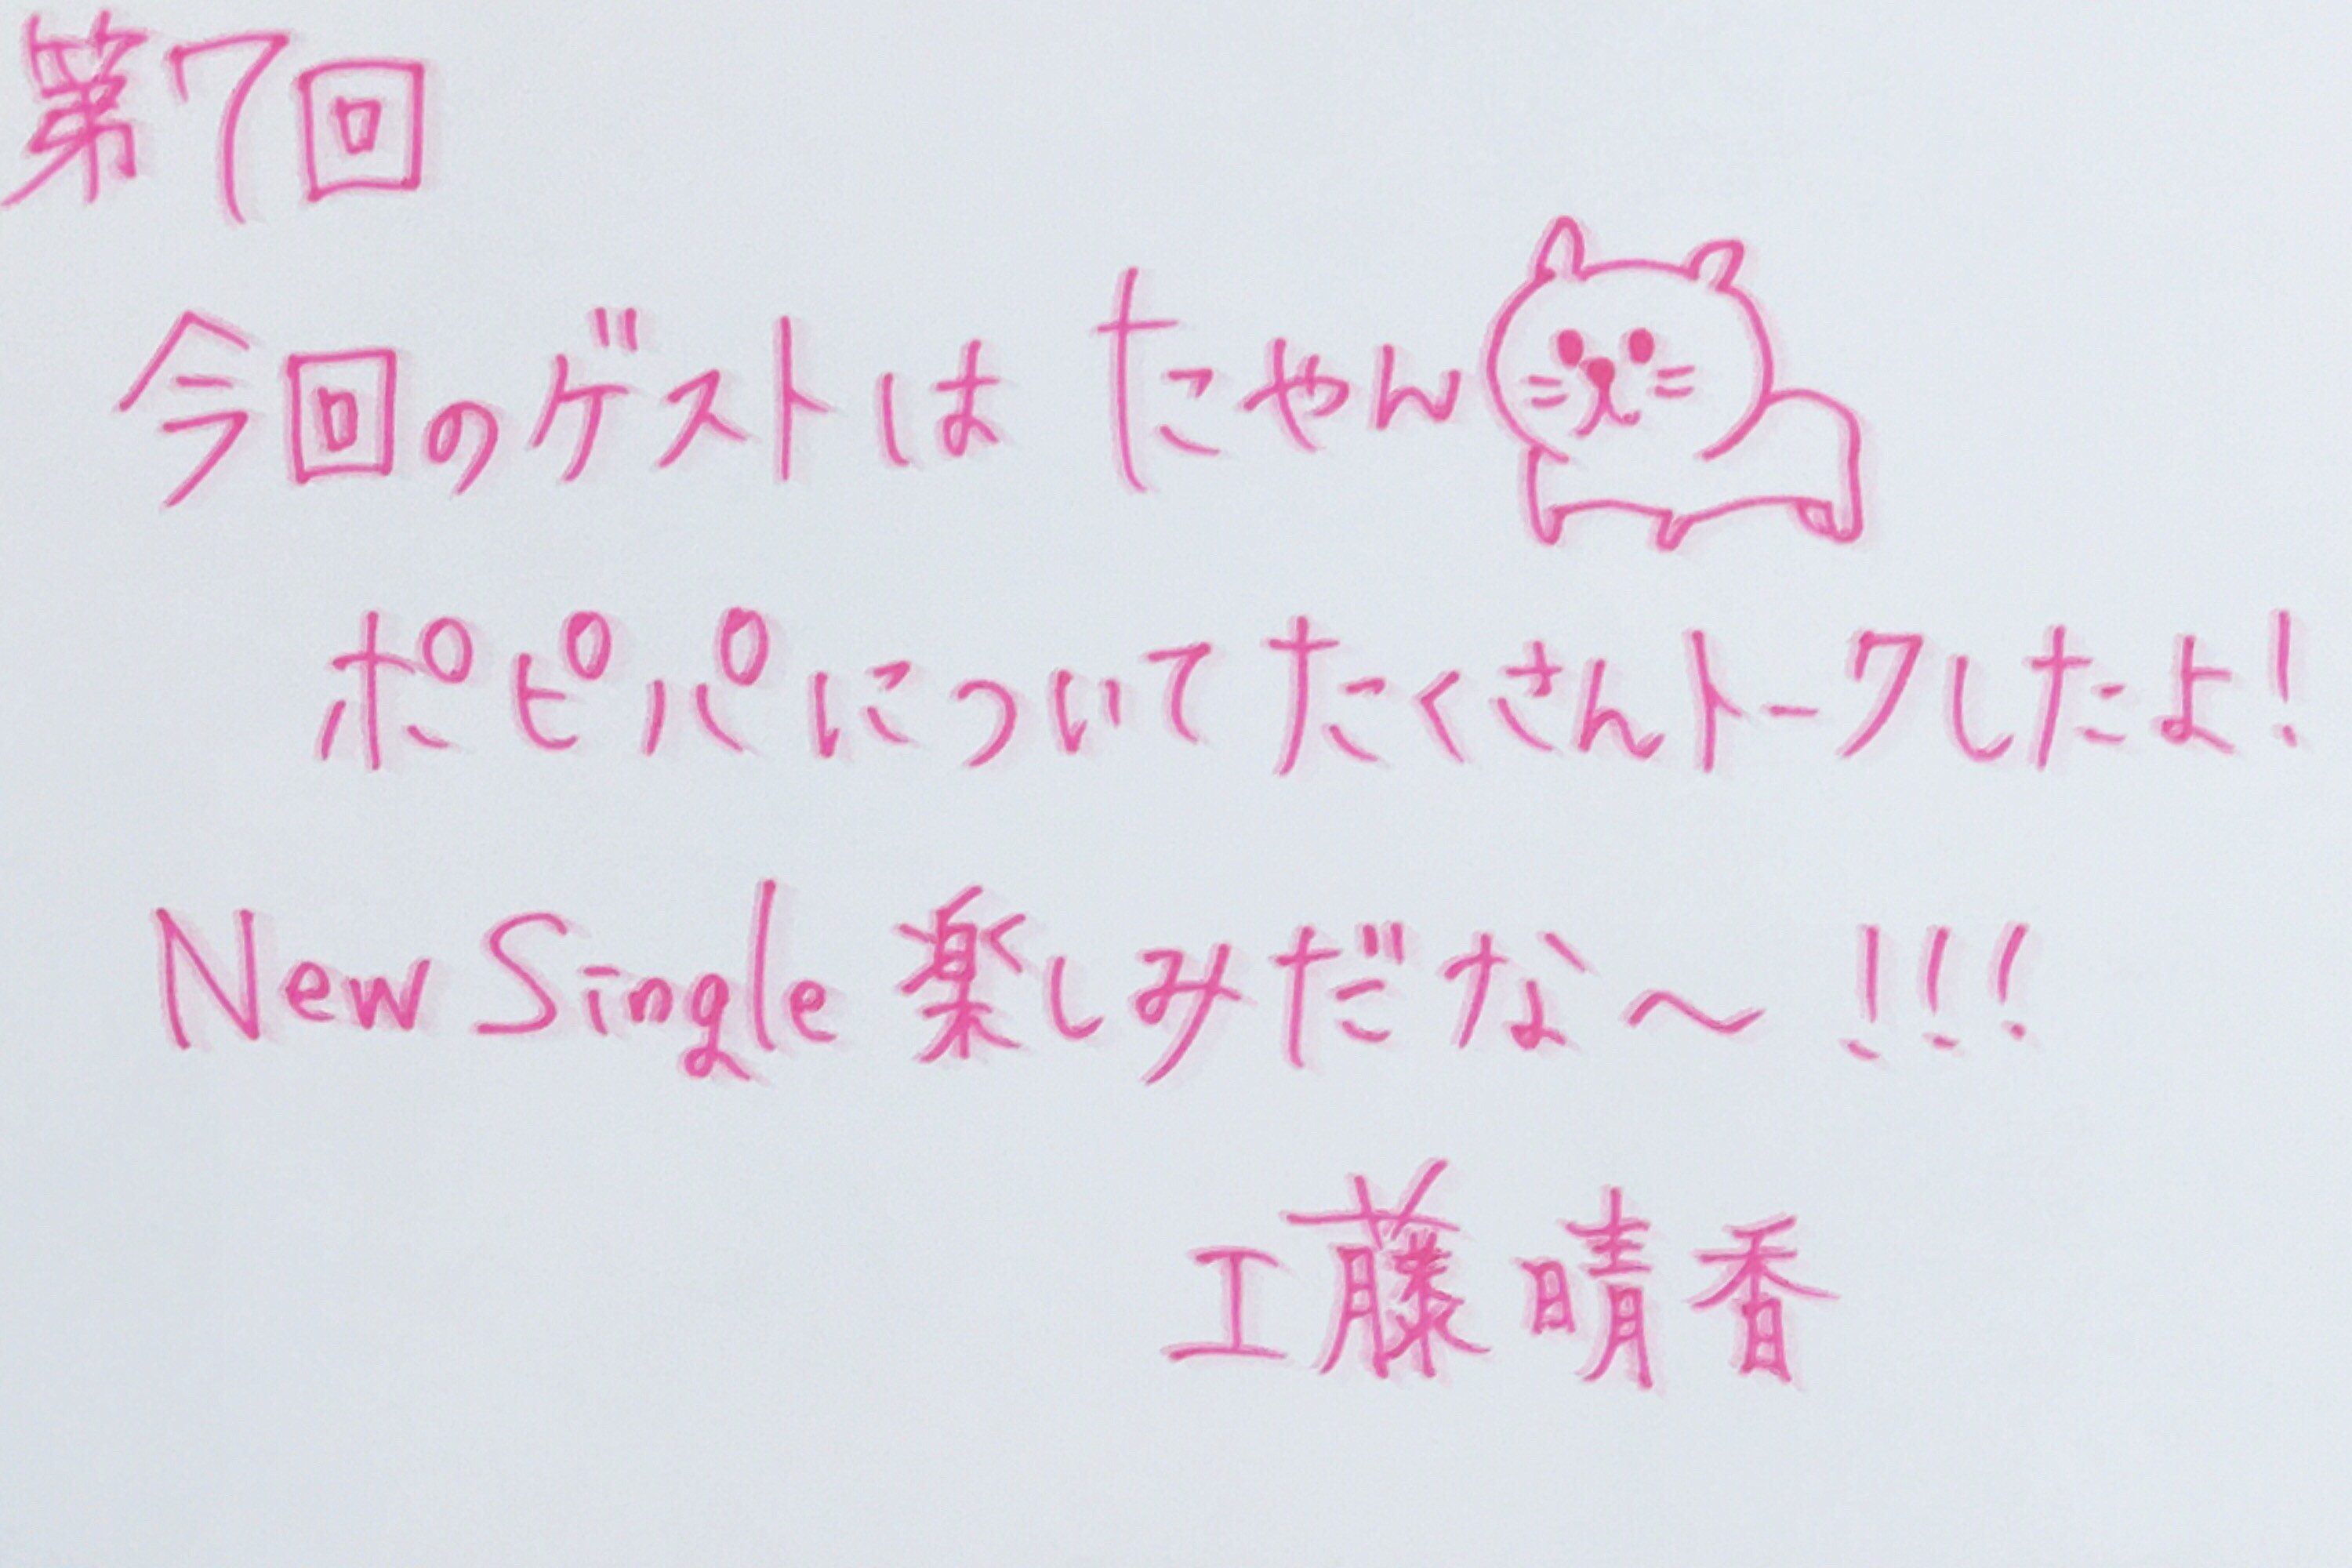 第7回
今回のゲストは たやん
ポピパについてたくさんトークしたよ!
New Single 楽しみだな〜!!!
工藤晴香